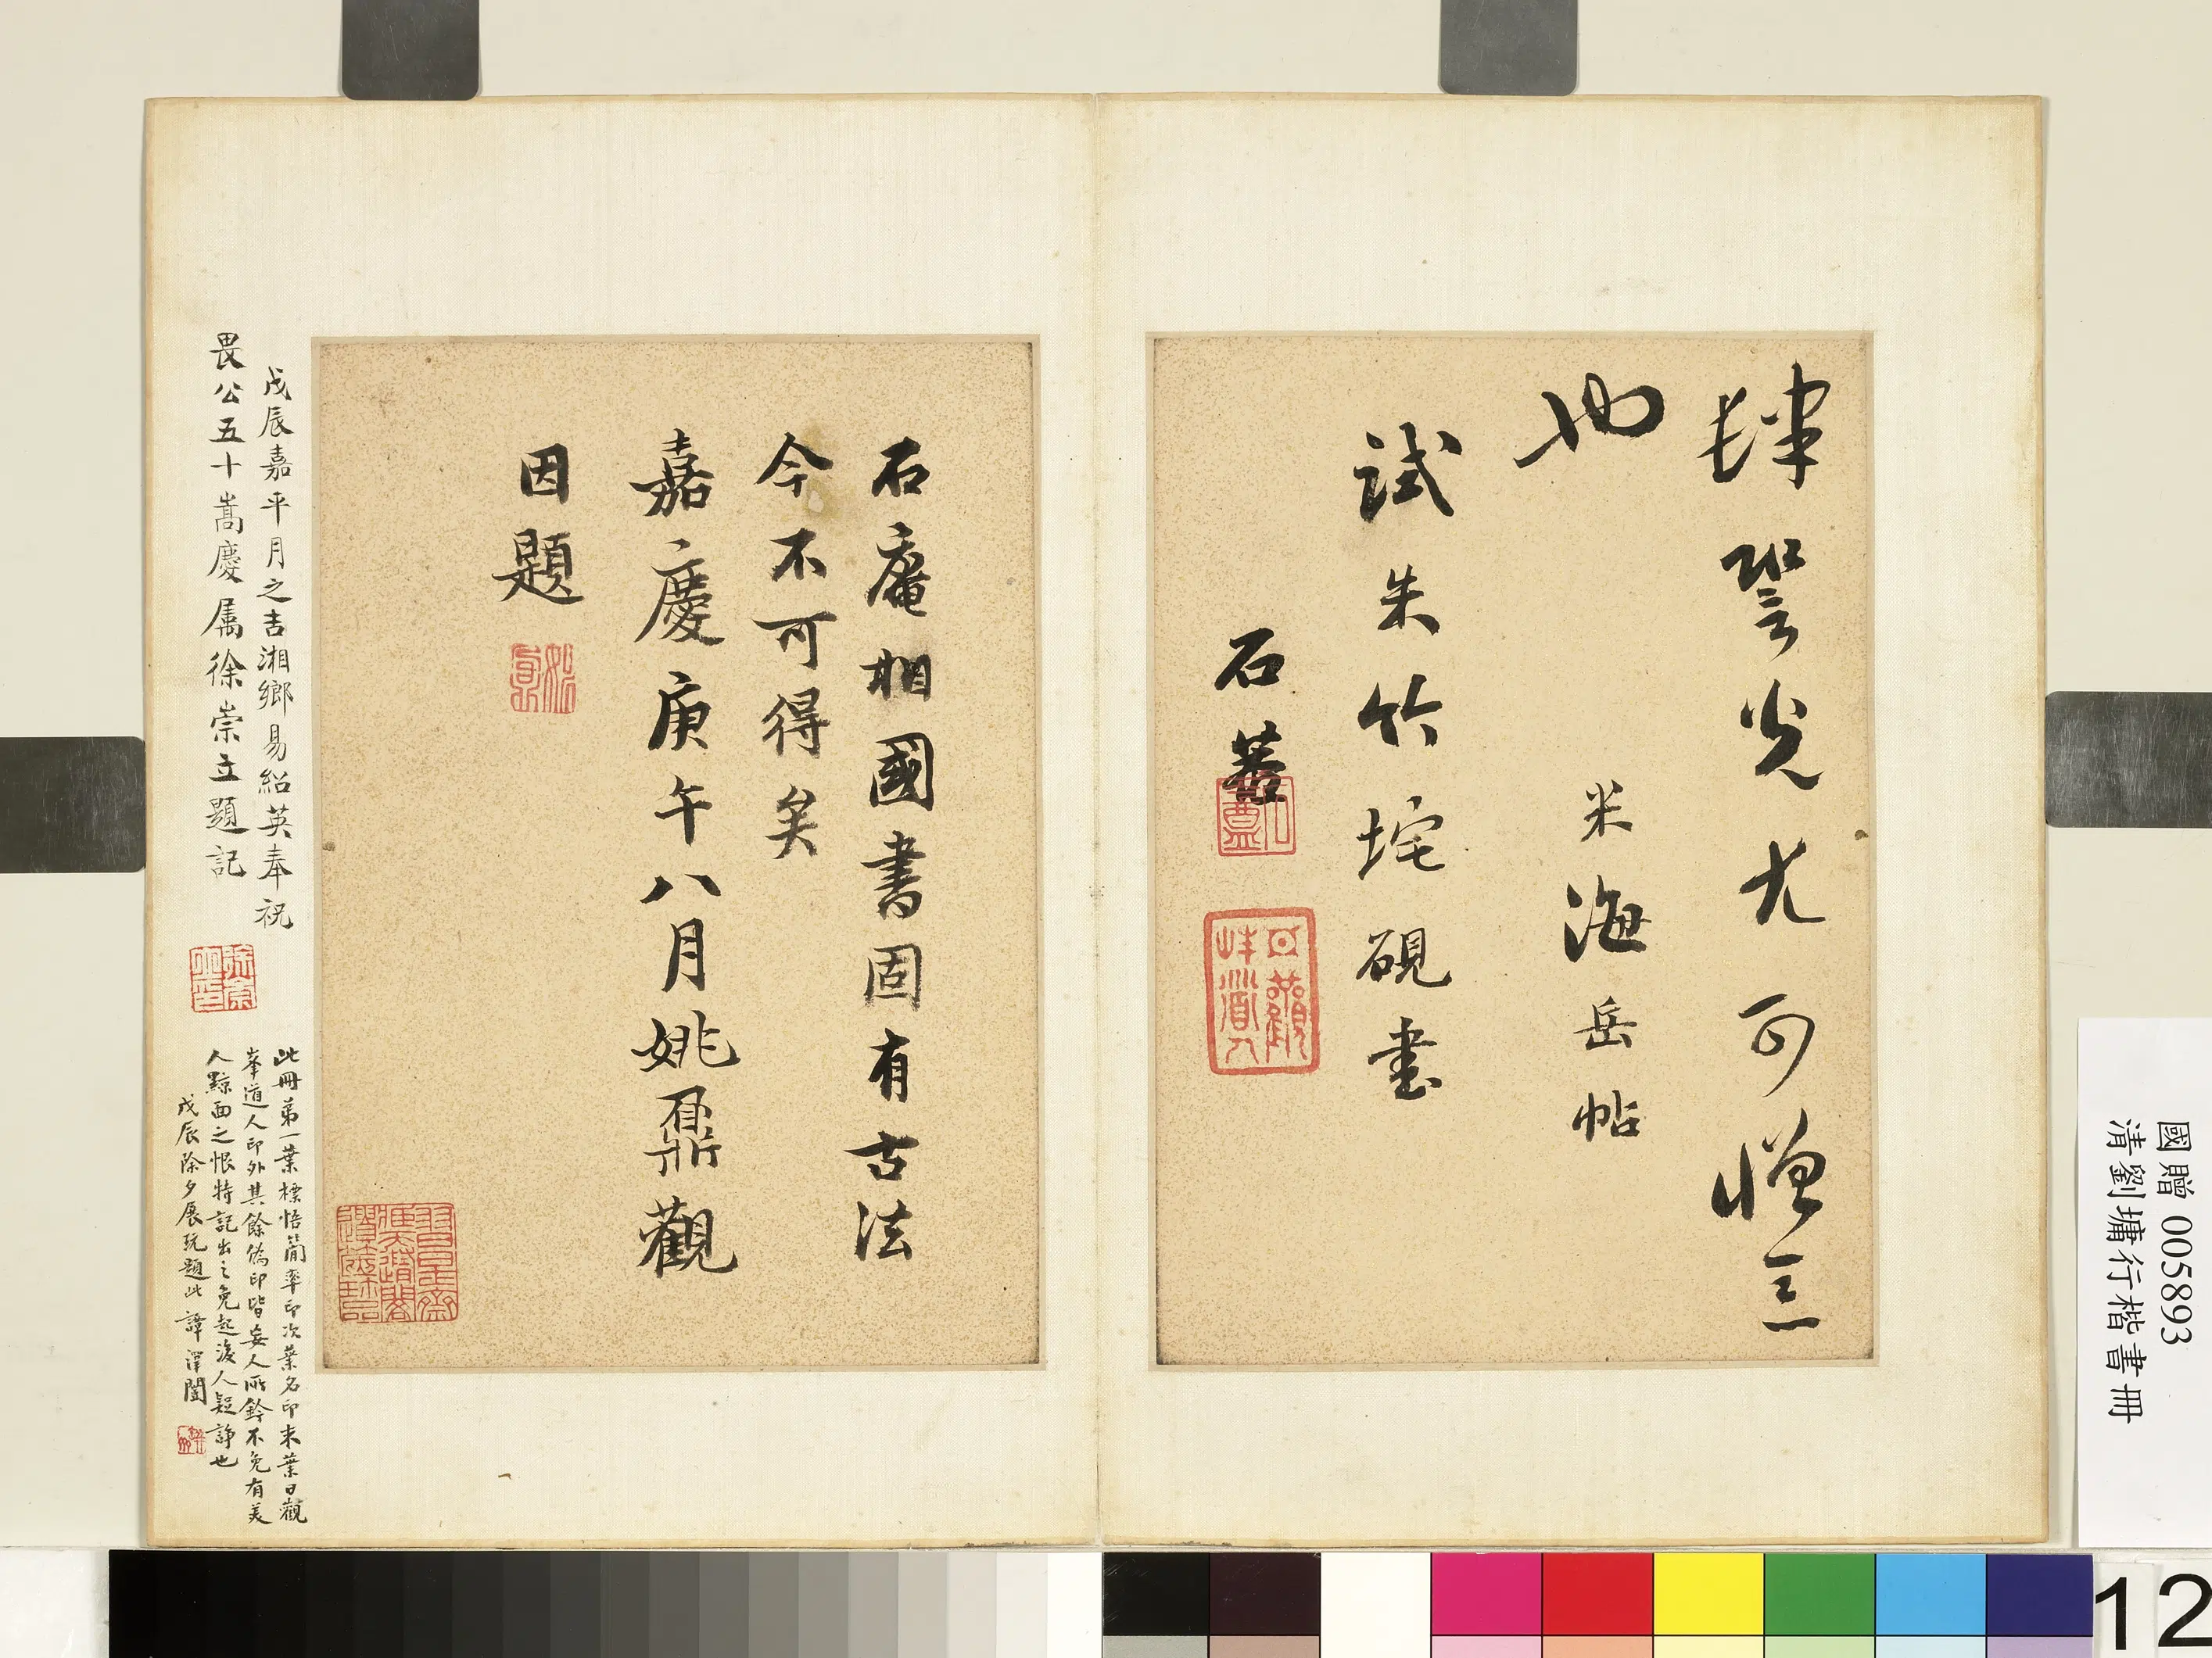 肆䛒光尤可憎惡
也
米海岳帖
試朱竹垞硯書
石菴
日觀峰道人
石庵相國書固有古法
今不可得矣
嘉慶庚午八月姚鼐觀
因題
戊辰嘉平月之吉湘鄉易紹英奉祝
畏公五十嵩慶屬徐崇立題記
徐崇立印
此冊第一葉標悟簡率印次葉名印末葉日觀
峯道人印外其餘偽印皆妄人所鈐不免有美
人黥面之恨特記出之免起後人疑諍也
戊辰除夕展玩題此 譚澤闓
國贈 005893
清劉墉行楷書冊
12